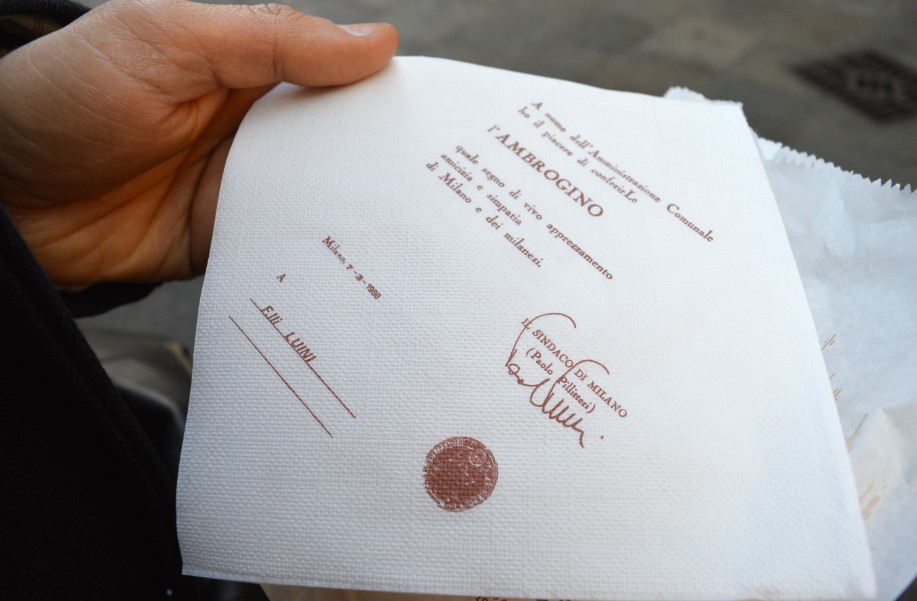 A nome dell'Amministrazione Comunale
ho il piacere di conferirLe
l'AMBROGINO
quale segno di vivo apprezzamento
amicizia e simpatia
di Milano e dei milanesi.
Milano, 7-XII-1988
A
F.lli LUINI
IL SINDACO DI MILANO
(Paolo Pillitteri)